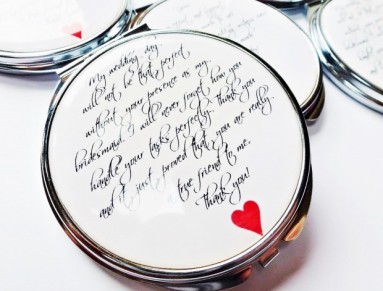 My wedding day
will not be that perfect
without your presence as my
bridesmaid. I will never forget how you
handle your tasks perfectly. thank you
and it just proved that you are really
a true friend to me.
Thank you!